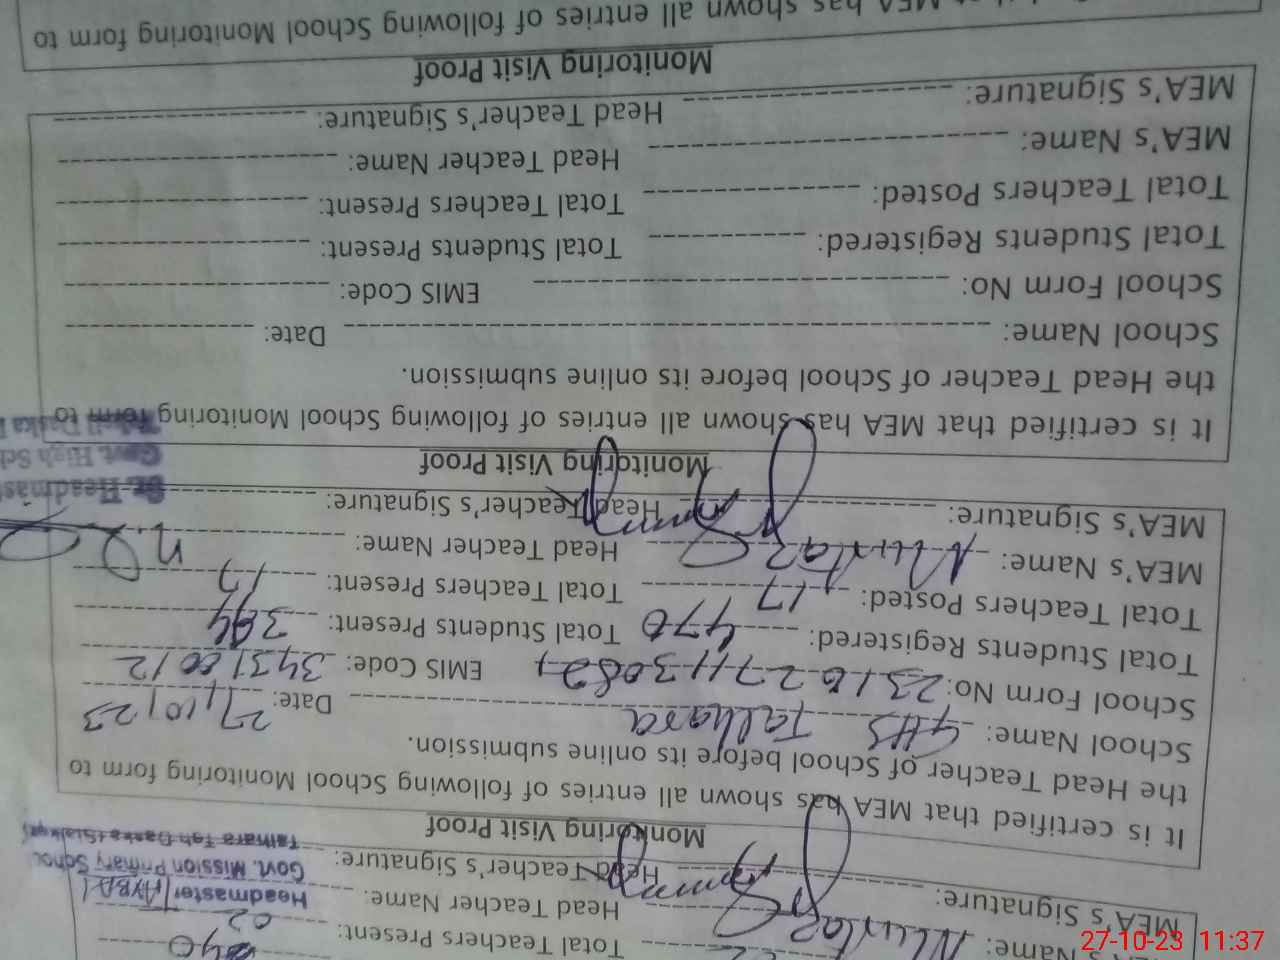 Total Teachers Present: 02
MEA's Name: Mumtaz Head Teacher Name:
MEA's Signature: Head Teacher's Signature:
Headmaster
Govt. Mission Primary School
Talhara Teh Daska (Sialkot)
Monitoring Visit Proof
It is certified that MEA has shown all entries of following of School Monitoring form to
the Head Teacher of School before its online submission.
School Name: GHS Talhara Date: 27/10/23
School Form No: EMIS Code: 34310012
Total Students Registered: 470 Total Students Present:
Total Teachers Posted: 17 Total Teachers Present: 17
MEA's Name: Mumtaz Head Teacher Name:
MEA's Signature: Head Teacher's Signature:
Sr. Headmast
Govt. High Sch
Tehsil Daska
Monitoring Visit Proof
It is certified that MEA has shown all entries of following of School Monitoring form to
the Head Teacher of School before its online submission.
School Name: Date:
School Form No: EMIS Code:
Total Students Registered: Total Students Present:
Total Teachers Posted: Total Teachers Present:
MEA's Name: Head Teacher Name:
MEA's Signature: Head Teacher's Signature:
Monitoring Visit Proof
MEA has shown all entries of following of School Monitoring form to
27-10-23 11:37